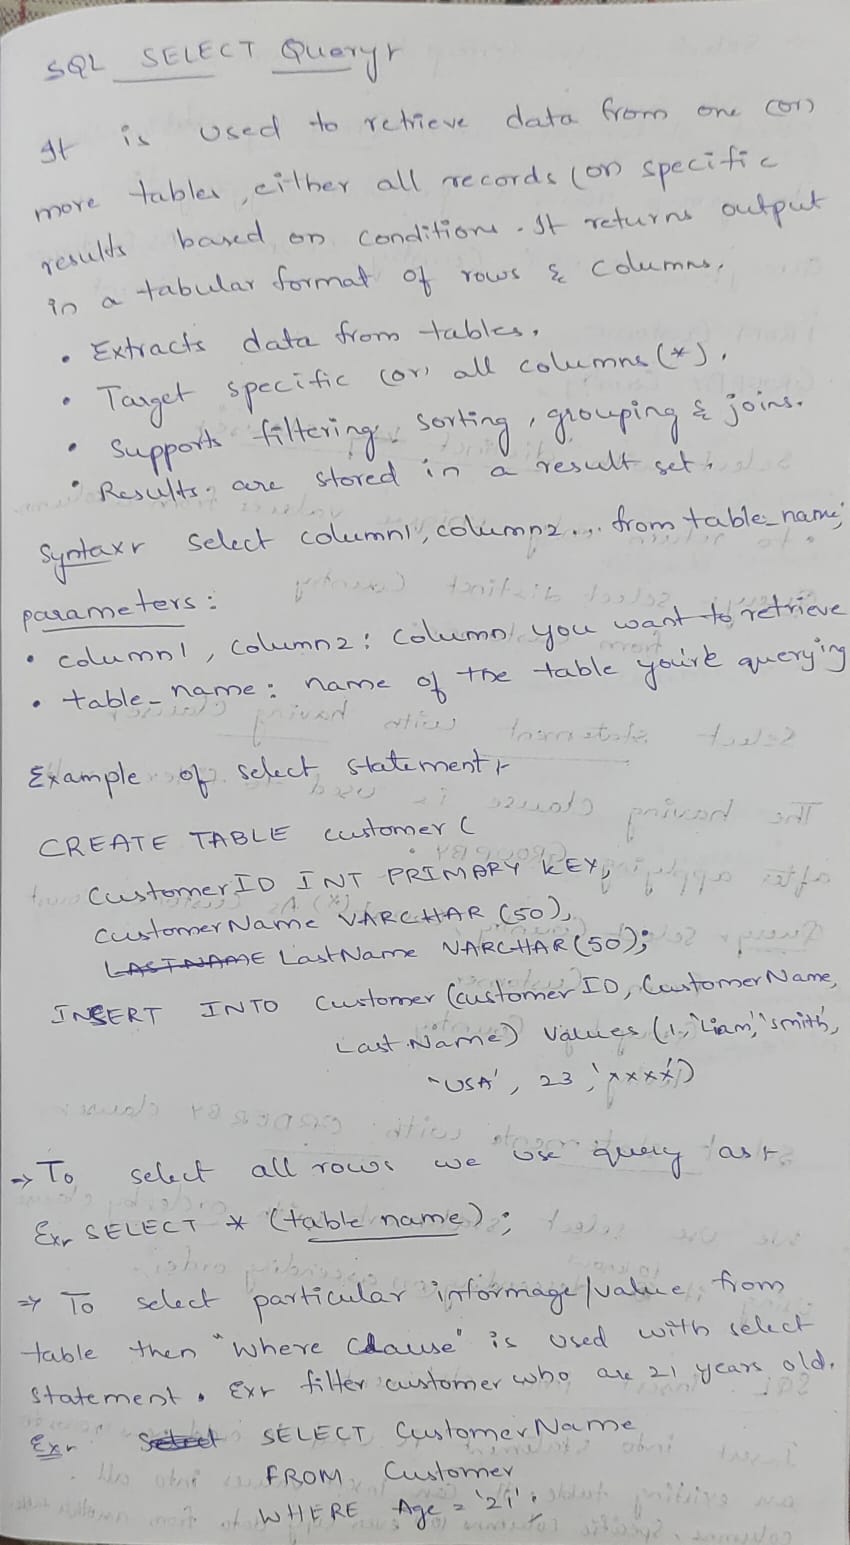 SQL SELECT Query:-
It is used to retrieve data from one (or)
more tables, either all records (or) specific
results based on conditions. It returns output
in a tabular format of rows & columns.
• Extracts data from tables.
• Target specific (or) all columns (*).
• Supports filtering, sorting, grouping & joins.
• Results are stored in a result set.
Syntax:- Select column1, column2... from table_name;
parameters:
• column1, column2: column you want to retrieve
• table_name: name of the table you're querying
Example of select statement:-
CREATE TABLE customer (
CustomerID INT PRIMARY KEY,
CustomerName VARCHAR (50),
LASTNAME LastName VARCHAR (50);
INSERT INTO Customer (customer ID, CustomerName,
Last Name) Values (1, 'Liam', 'smith',
'USA', 23, 'xxxx')
→ To select all rows we use query as:-
Ex:- SELECT * (table name);
⇒ To select particular informage/value from
table then "where Clause" is used with select
statement. Ex:- filter customer who are 21 years old.
Ex:- Select SELECT CustomerName
FROM Customer
WHERE Age = '21';